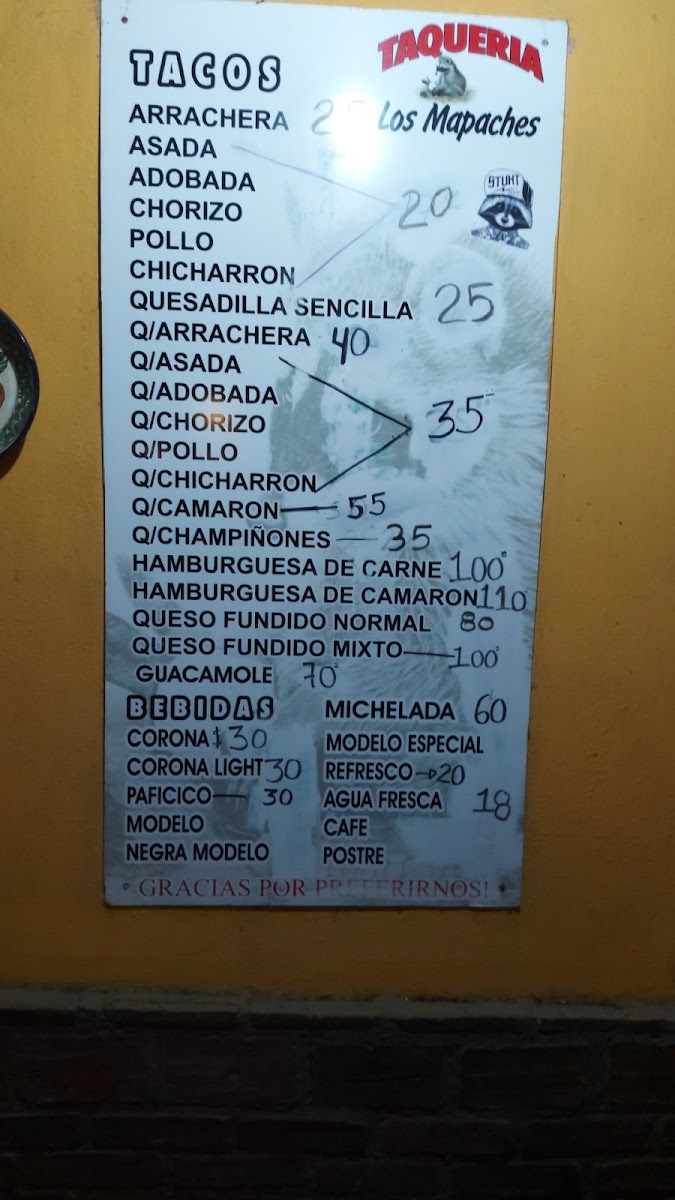 TACOS
TAQUERIA
Los Mapaches
ARRACHERA
ASADA
ADOBADA
STUNT
CHORIZO
20
POLLO
CHICHARRON
QUESADILLA SENCILLA 25
Q/ARRACHERA 40
Q/ASADA
Q/ADOBADA
Q/CHORIZO 35
Q/POLLO
Q/CHICHARRON
Q/CAMARON 55
Q/CHAMPIÑONES 35
HAMBURGUESA DE CARNE 100
HAMBURGUESA DE CAMARON 110
QUESO FUNDIDO NORMAL 80
QUESO FUNDIDO MIXTO 100
GUACAMOLE 70
BEBIDAS
CORONA $30
CORONA LIGHT 30
PAFICICO 30
MODELO
NEGRA MODELO
MICHELADA 60
MODELO ESPECIAL
REFRESCO 20
AGUA FRESCA 18
CAFE
POSTRE
GRACIAS POR PREFERIRNOS!